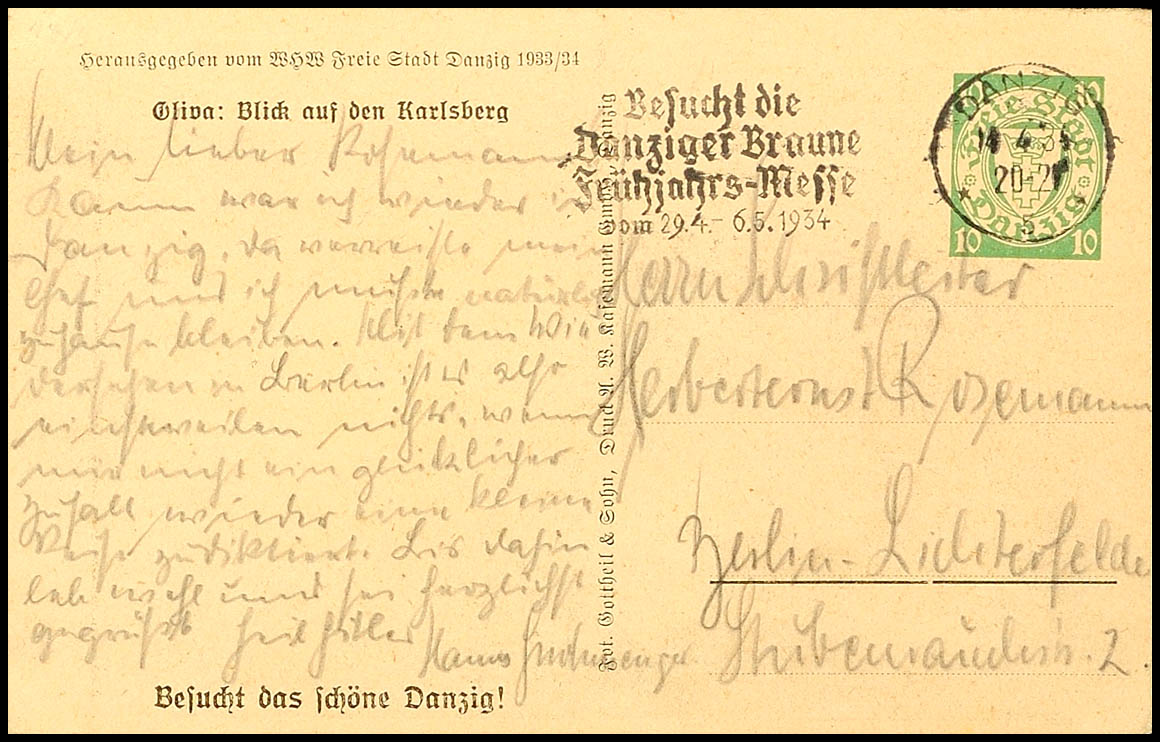 Herausgegeben vom WHW Freie Stadt Danzig 1933/34
Oliva: Blick auf den Karlsberg
Mein lieber Rosemann
Kaum war ich wieder in
Danzig, da verreiste mein
Chef und ich musste natürlich
zuhause bleiben. Mit dem Wie
dersehen in Berlin ist es also
einstweilen nichts, wenn
mir nicht ein glücklicher
Zufall wieder eine kleine
Reise zudiktiert. Bis dahin
leb wohl und sei herzlichst
gegrüsst Heil Hitler
Hanns
Besucht das schöne Danzig!
Fot. Gottheil & Sohn, Druck A. W. Kafemann GmbH., Danzig
Besucht die
Danziger Braune
Frühjahrs-Messe
vom 29.4.- 6.5.1934
DANZIG
20-21
5
Freie Stadt
Danzig
10 10
Herrn Schriftleiter
Herbert Ernst Rosemann
Berlin-Lichterfelde
2.